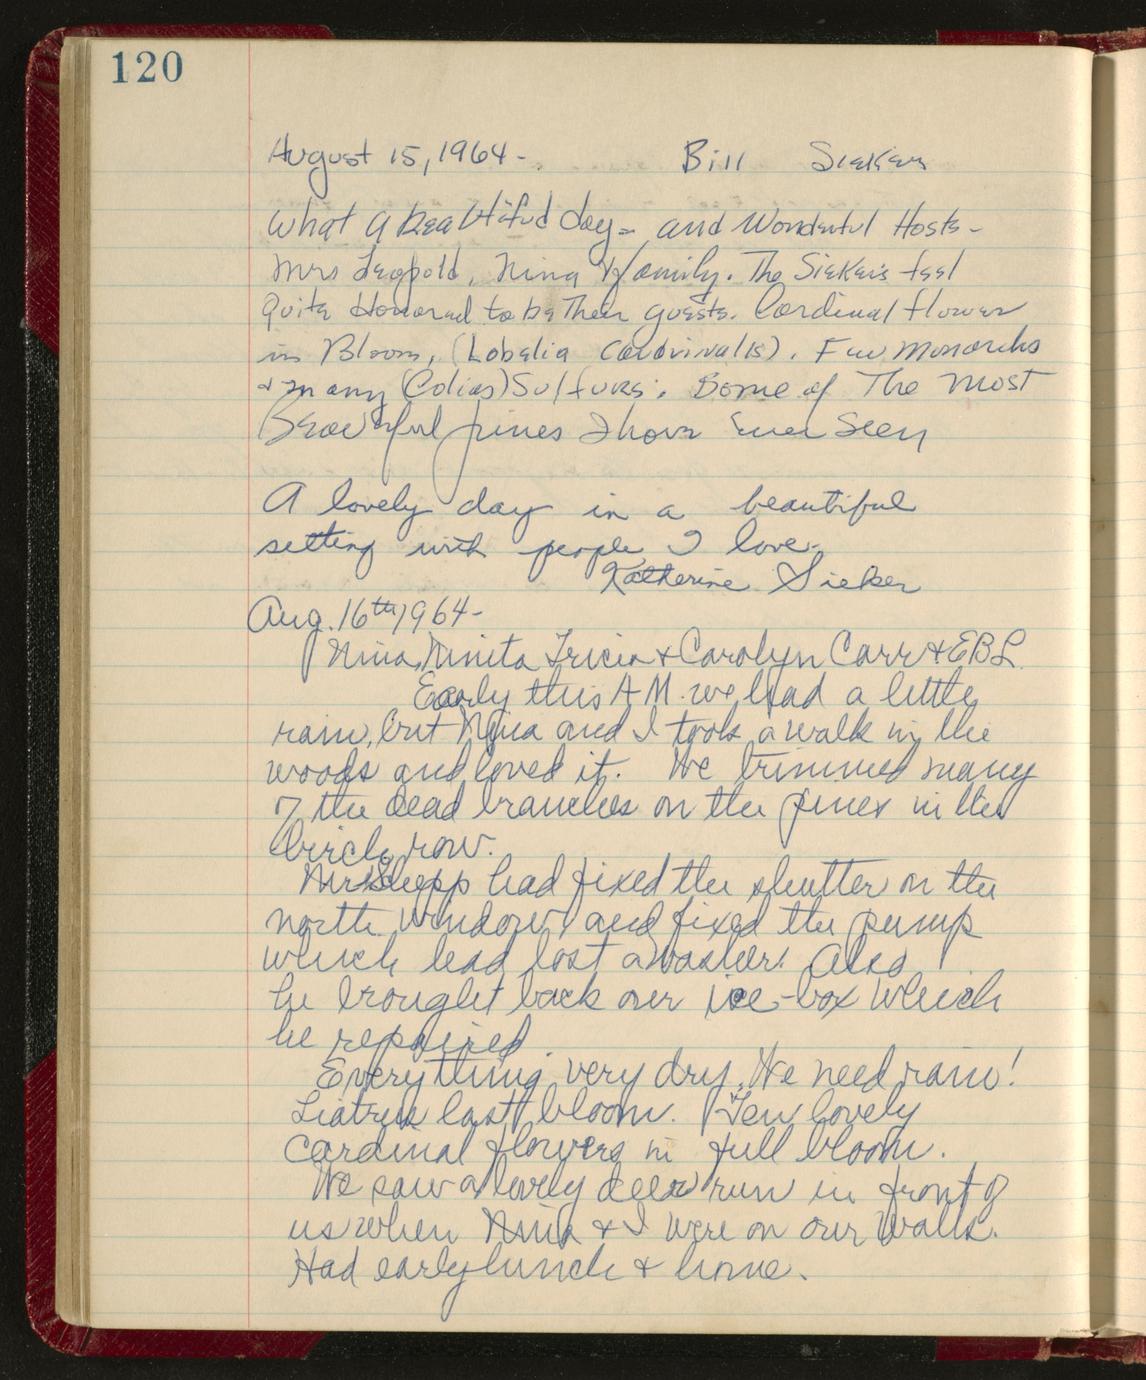 120
August 15, 1964- Bill Siekers
What a beautiful day - and Wonderful Hosts -
Mrs Leopold, Nina & family. The Siekers feel
Quite Honored to be Their guests. Cardinal flower
in Bloom, (Lobelia Cardinalis). Few Monarchs
& many (Colias) Sulfurs. Some of The most
Beautiful pines I have Ever Seen
A lovely day in a beautiful
setting with people I love.
Katherine Sieker
Aug. 16th 1964-
Nina, Ninita Tricia & Carolyn Carr & EBL.
Early this A.M. we had a little
rain, but Nina and I took a walk in the
woods and loved it. We trimmed many
of the dead branches on the pines in the
birch row.
had fixed the shutter on the
north window and fixed the pump
which had lost a washer. Also
he brought back our ice-box which
he repaired.
Everything very dry. We need rain!
Liatris last bloom. Few lovely
Cardinal flowers in full bloom.
We saw a lovely deer run in front of
us when Nina & I were on our walk.
Had early lunch & home.